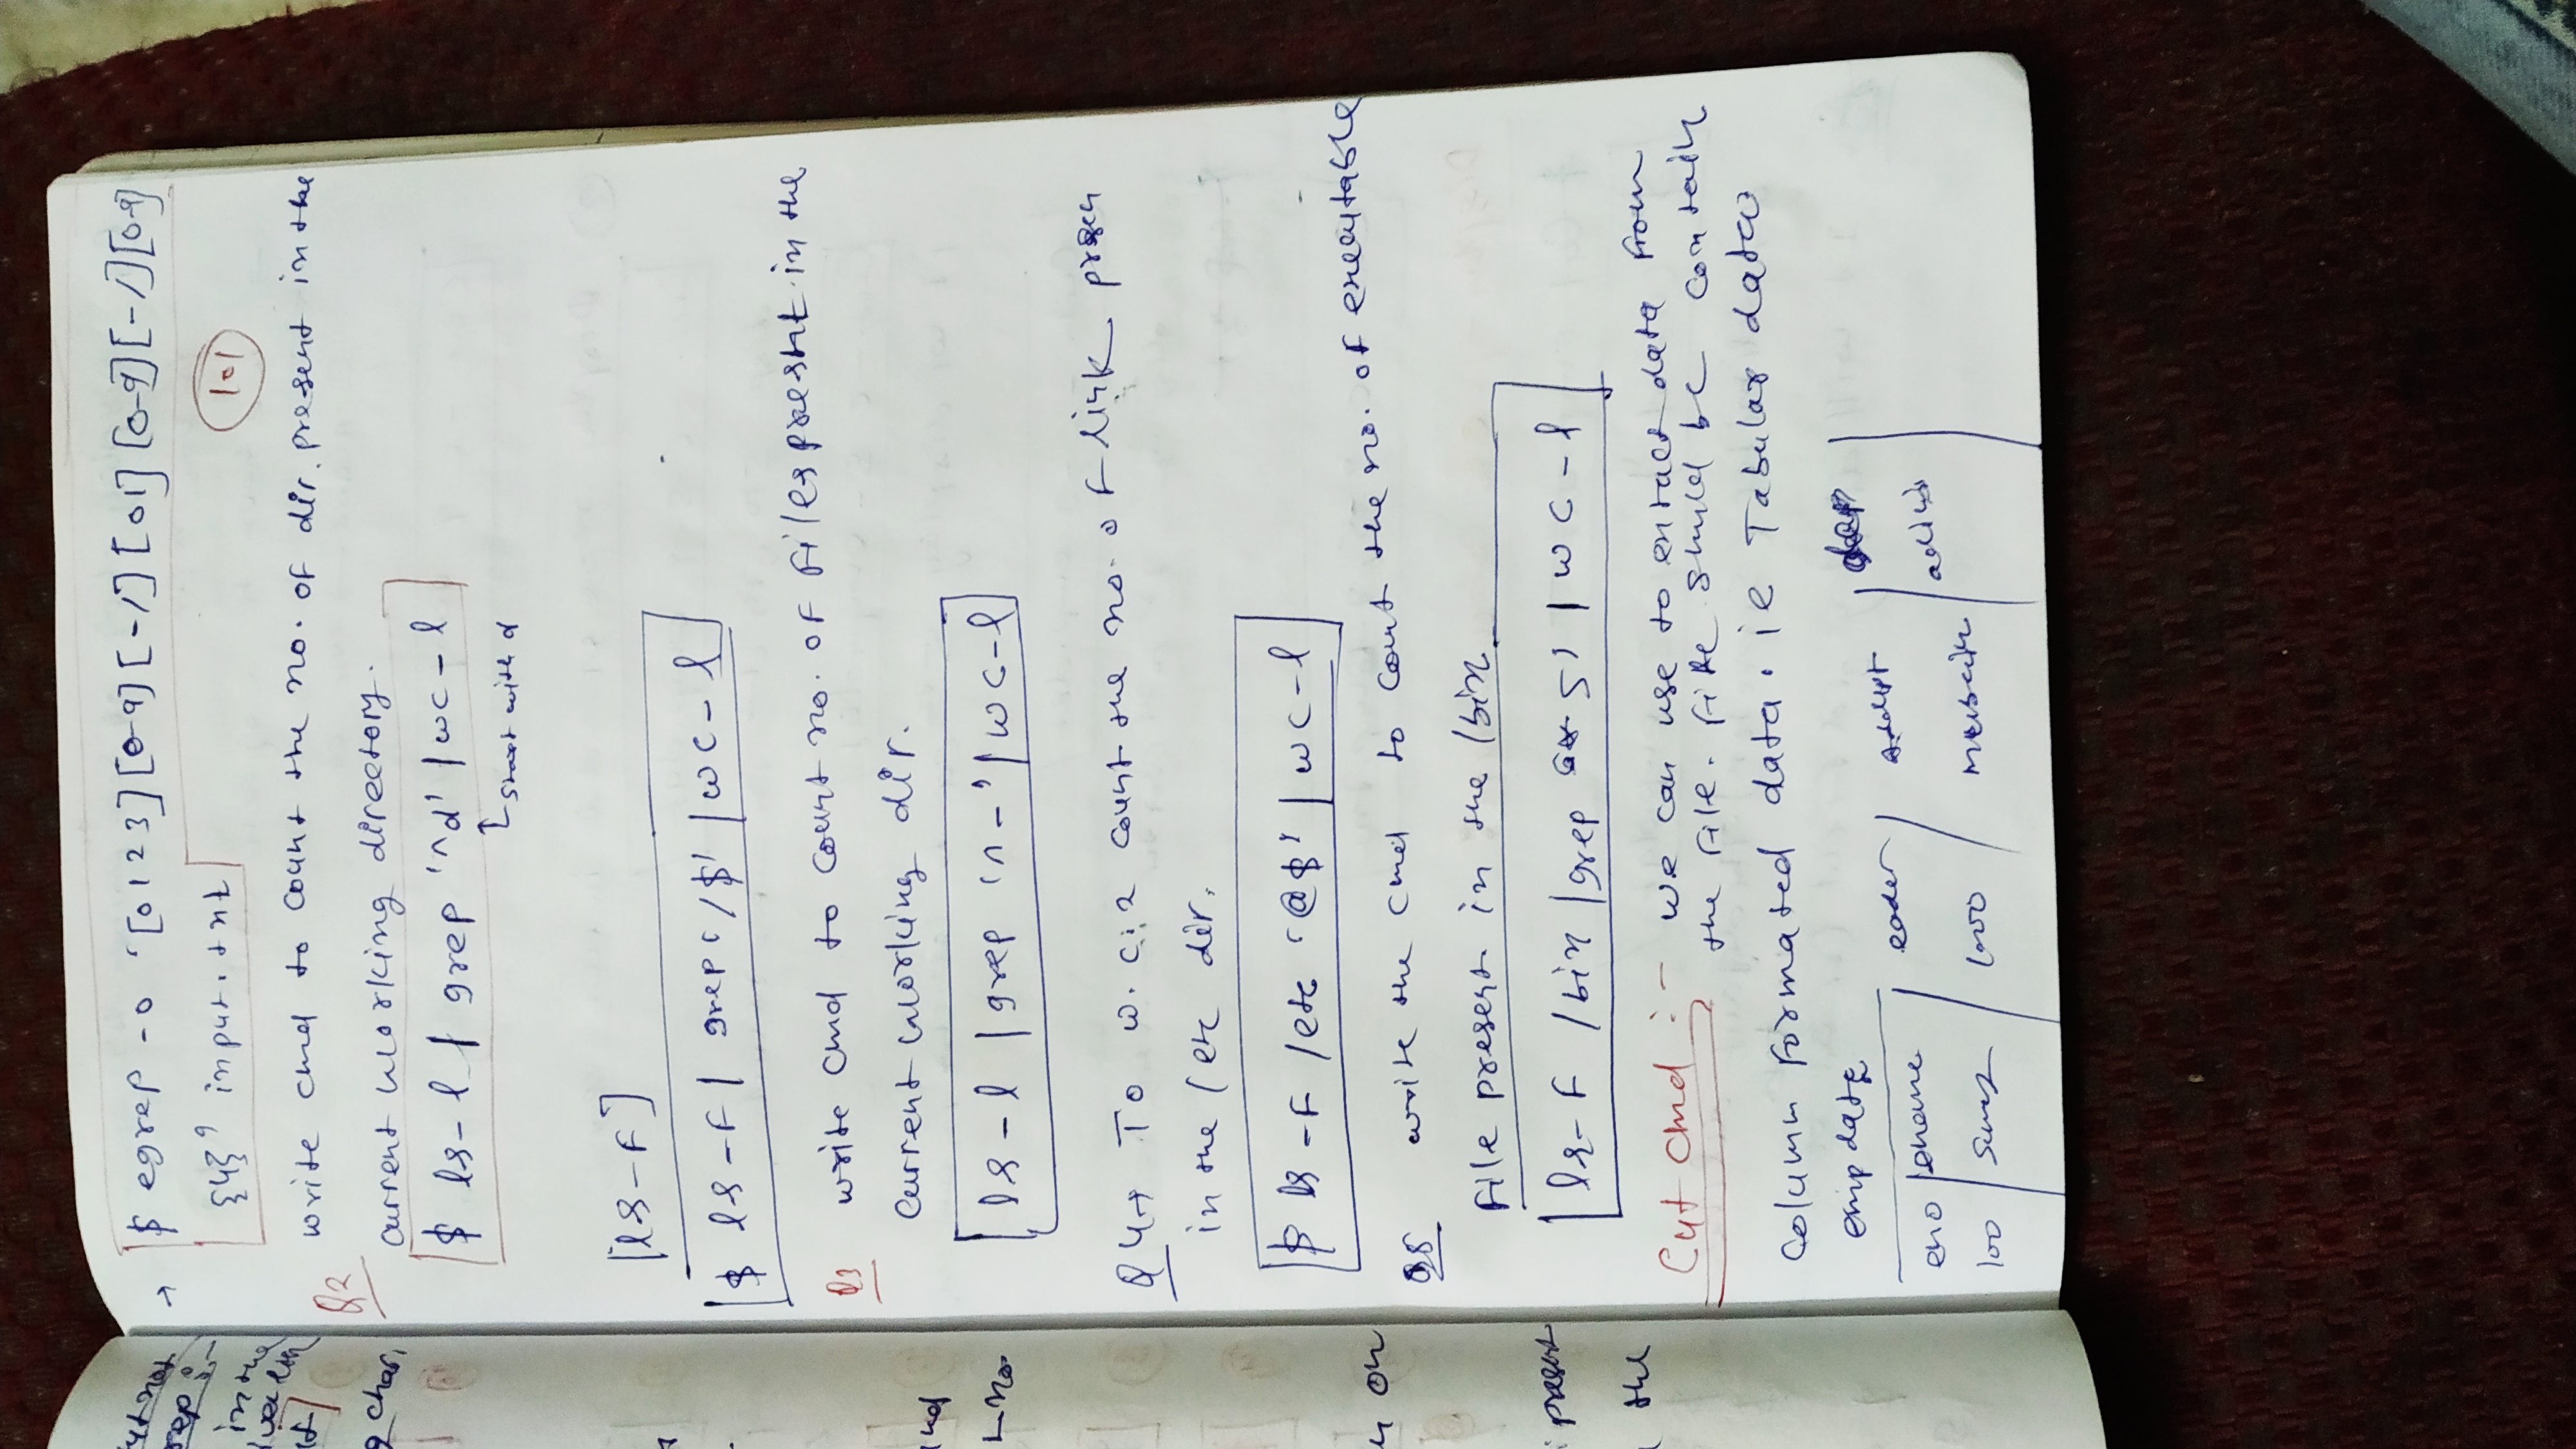 ut not
rep :-
in the
char,
no.
on
present
the
→ $ egrep -o '[0123][0-9][-/][01][0-9][-/][0-9]
{4}' input.txt
101
Q2 write cmd to count the no. of dir. present in the
current working directory.
$ ls -l | grep '^d' | wc -l
start with d
[ls -F]
$ ls -F | grep '/$' | wc -l
Q3 write cmd to count no. of files present in the
current working dir.
ls -l | grep '^-' | wc -l
Q4→ To w.c. 2 count the no. of link presen
in the /etc dir.
$ ls -F /etc '@$' | wc -l
Q5 write the cmd to count the no. of executable
file present in the /bin
ls -F /bin | grep | wc -l
Cut cmd :- we can use to extract data from
the file. file should be contain
column formated data. ie Tabular data
emp data
eno | ename | | | dep
100 | | 1000 | |